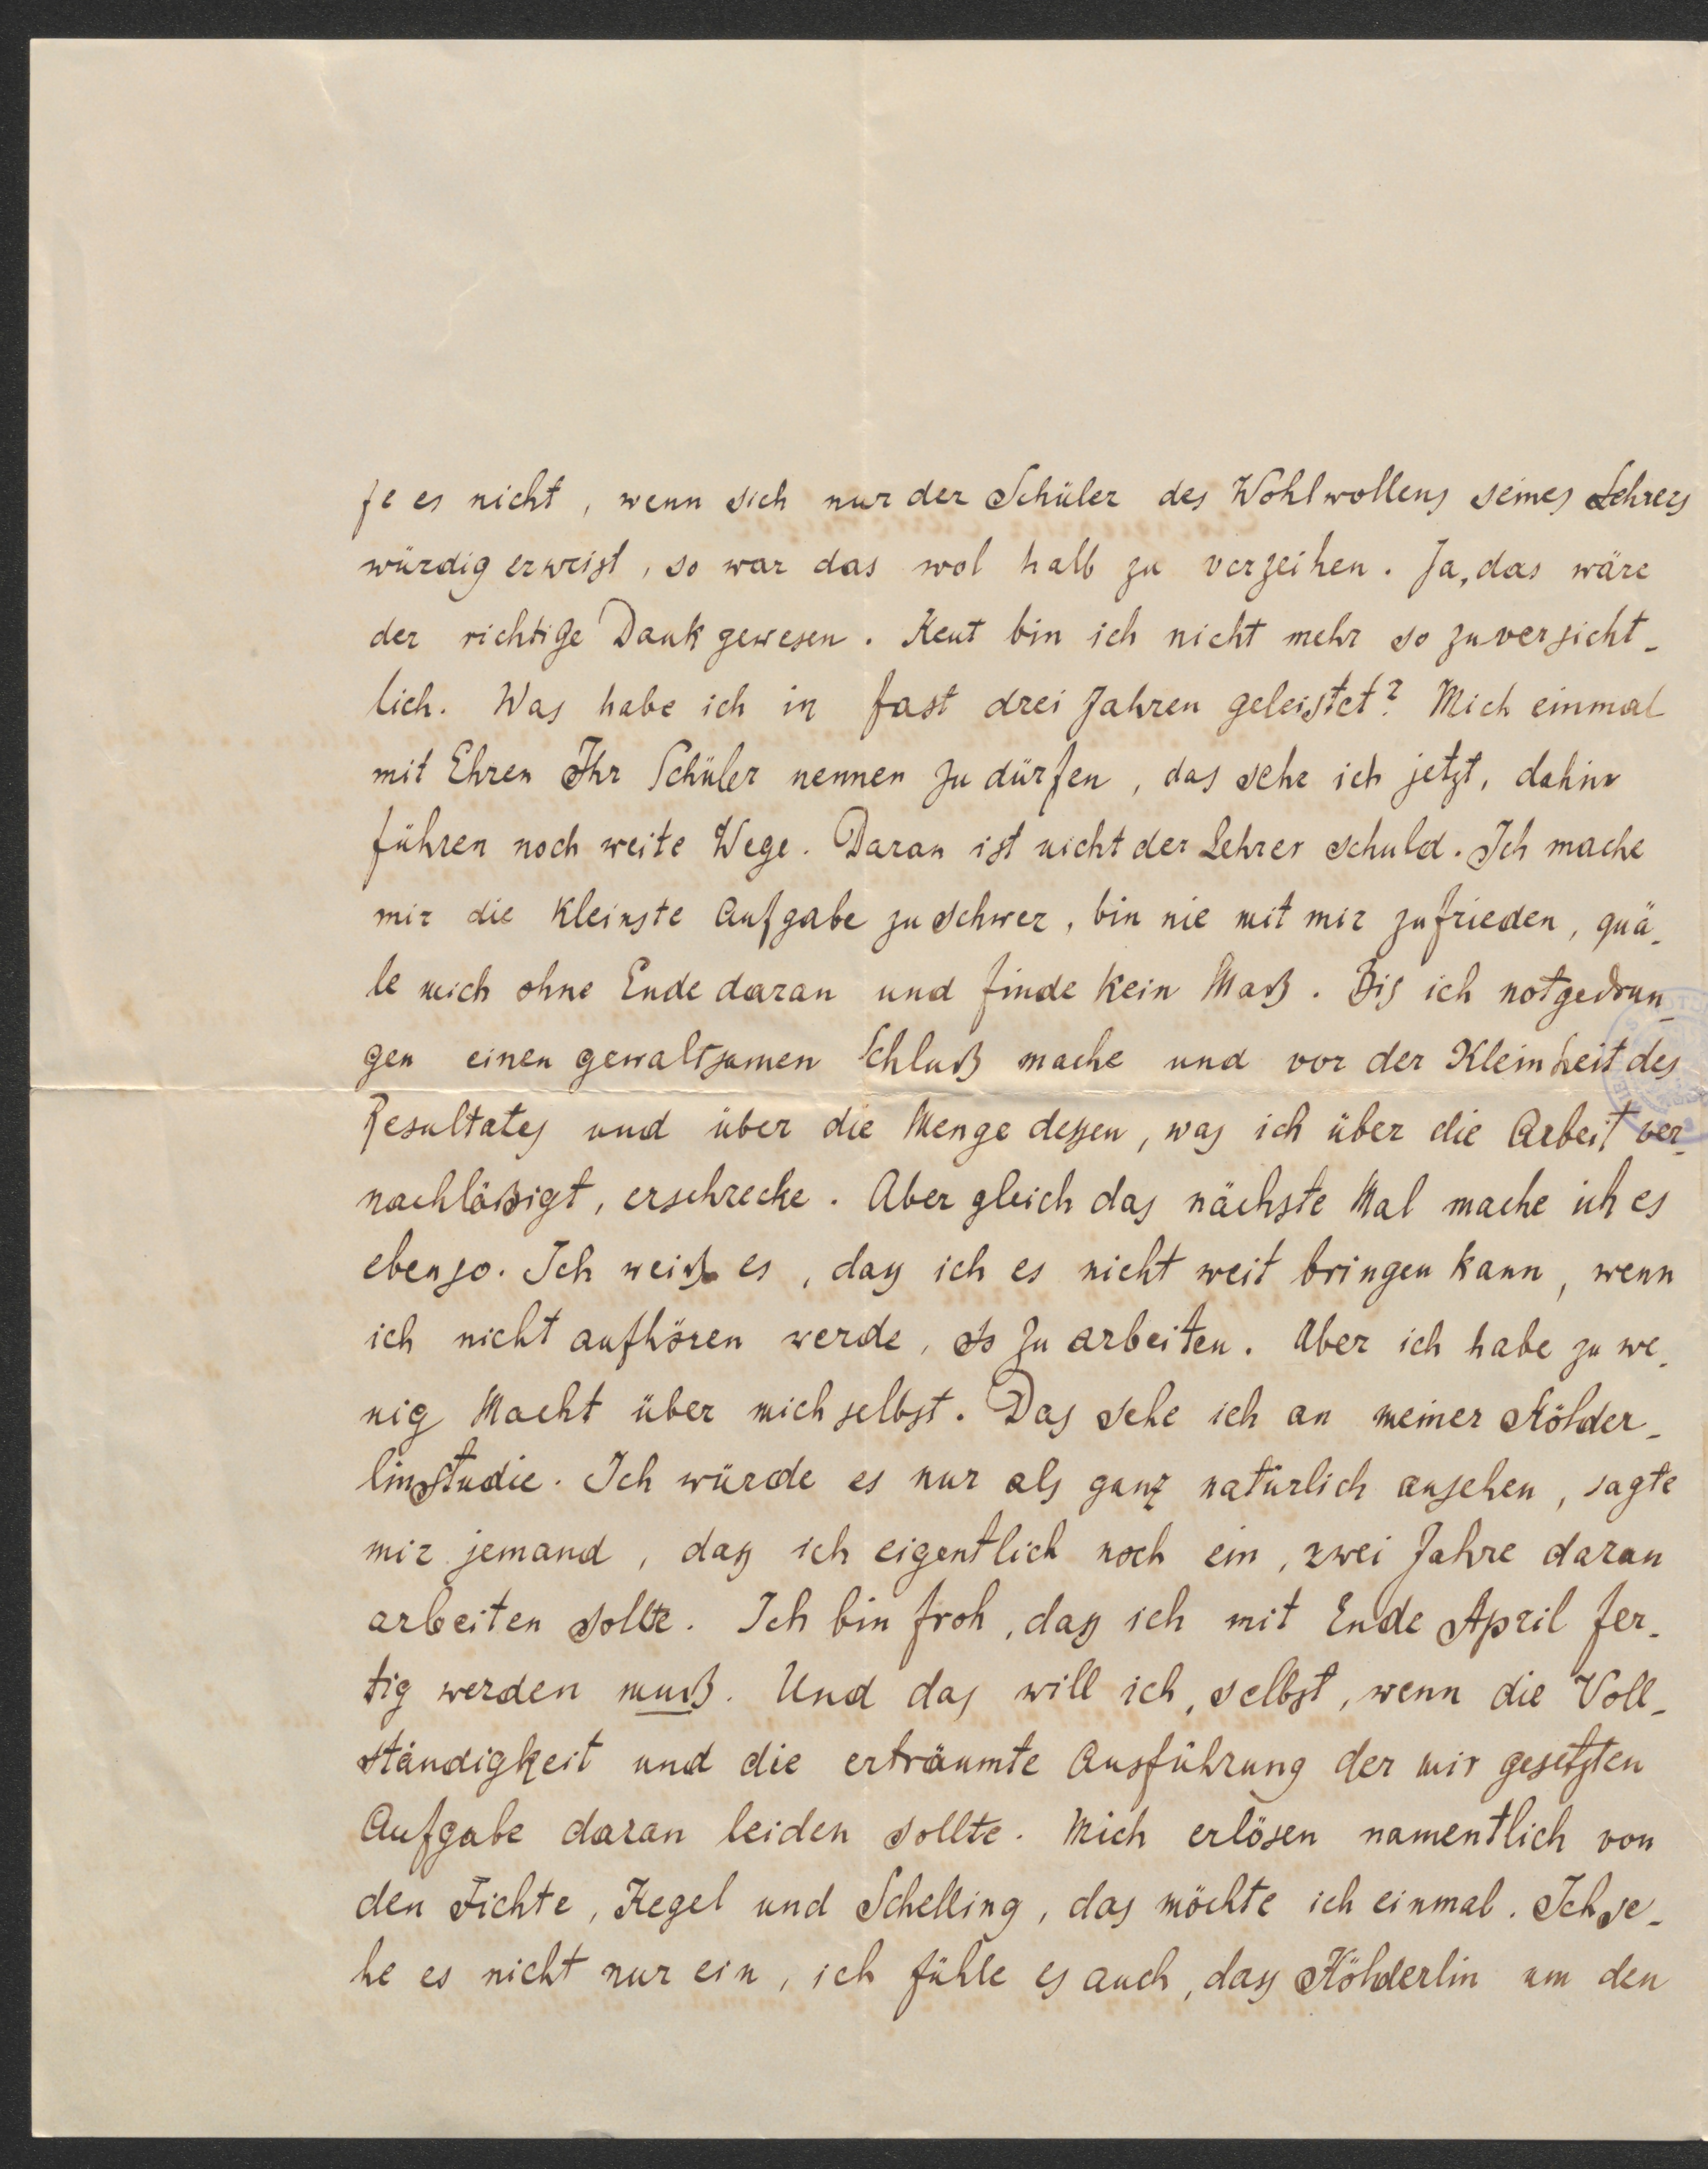 fe es nicht, wenn sich nur der Schüler des Wohlwollens seines Lehrers
würdig erweist, so war das wol halb zu verzeihen. Ja, das wäre
der richtige Dank gewesen. Heut bin ich nicht mehr so zuversicht-
lich. Was habe ich in fast drei Jahren geleistet? Mich einmal
mit Ehren Ihr Schüler nennen zu dürfen, das sehe ich jetzt, dahin
führen noch weite Wege. Daran ist nicht der Lehrer schuld. Ich mache
mir die kleinste Aufgabe zu schwer, bin nie mit mir zufrieden, quä-
le mich ohne Ende daran und finde kein Maß. Bis ich notgedrun-
gen einen gewaltsamen Schluß mache und vor der Kleinheit des
Resultates und über die Menge dessen, was ich über die Arbeit ver-
nachläßigt, erschrecke. Aber gleich das nächste Mal mache ich es
ebenso. Ich weiß es, dass ich es nicht weit bringen kann, wenn
ich nicht aufhören werde, so zu arbeiten. Aber ich habe zu we-
nig Macht über mich selbst. Das sehe ich an meiner Hölder-
linstudie. Ich würde es nur als ganz natürlich ansehen, sagte
mir jemand, dass ich eigentlich noch ein, zwei Jahre daran
arbeiten sollte. Ich bin froh, dass ich mit Ende April fer-
tig werden muß. Und das will ich, selbst, wenn die Voll-
ständigkeit und die erträumte Ausführung der mir gesetzten
Aufgabe daran leiden sollte. Mich erlösen namentlich von
den Fichte, Hegel und Schelling, das möchte ich einmal. Ich se-
he es nicht nur ein, ich fühle es auch, dass Hölderlin um den